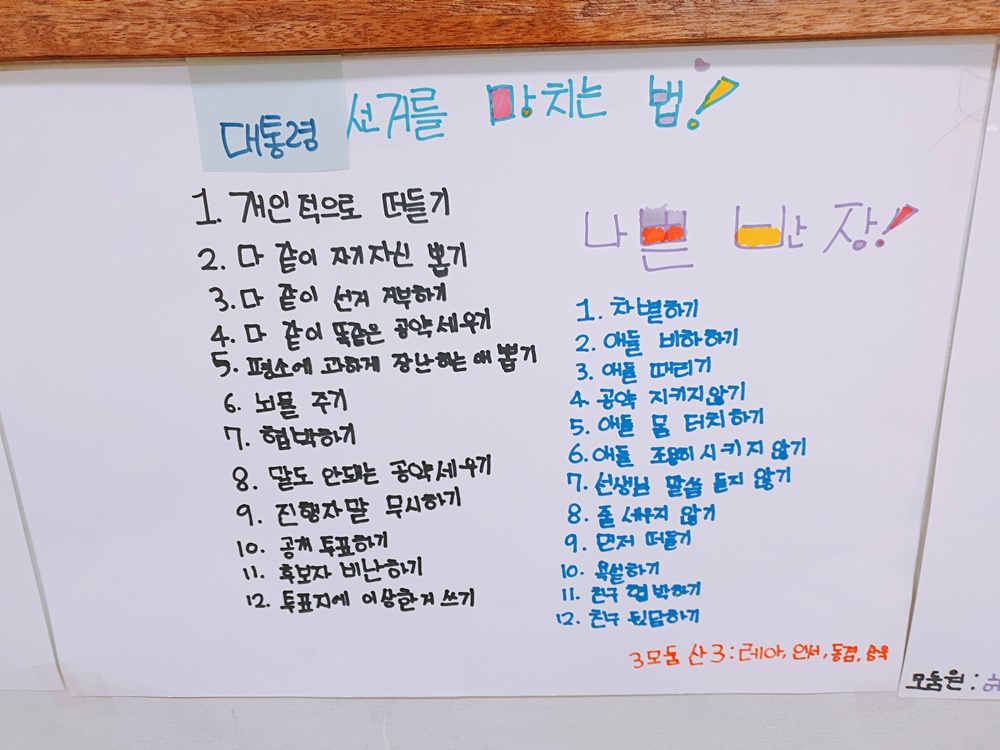 대통령 선거를 망치는 법!
1. 개인적으로 떠들기
2. 다 같이 자기자신 뽑기
3. 다 같이 선거 거부하기
4. 다 같이 똑같은 공약세우기
5. 평소에 과하게 장난하는 애 뽑기
6. 뇌물 주기
7. 협박하기
8. 말도 안되는 공약세우기
9. 진행자말 무시하기
10. 공개 투표하기
11. 후보자 비난하기
12. 투표지에 이상한거 쓰기
나쁜 반장!
1. 차별하기
2. 애들 비하하기
3. 애들 때리기
4. 공약 지키지않기
5. 애들 몸 터치하기
6. 애들 조용히시키지 않기
7. 선생님 말씀 듣지 않기
8. 줄 세우지 않기
9. 먼저 떠들기
10. 욕설하기
11. 친구 협박하기
12. 친구 뒷담하기
3모둠 산3: 레아, 인서, 동겸,
모둠원 :